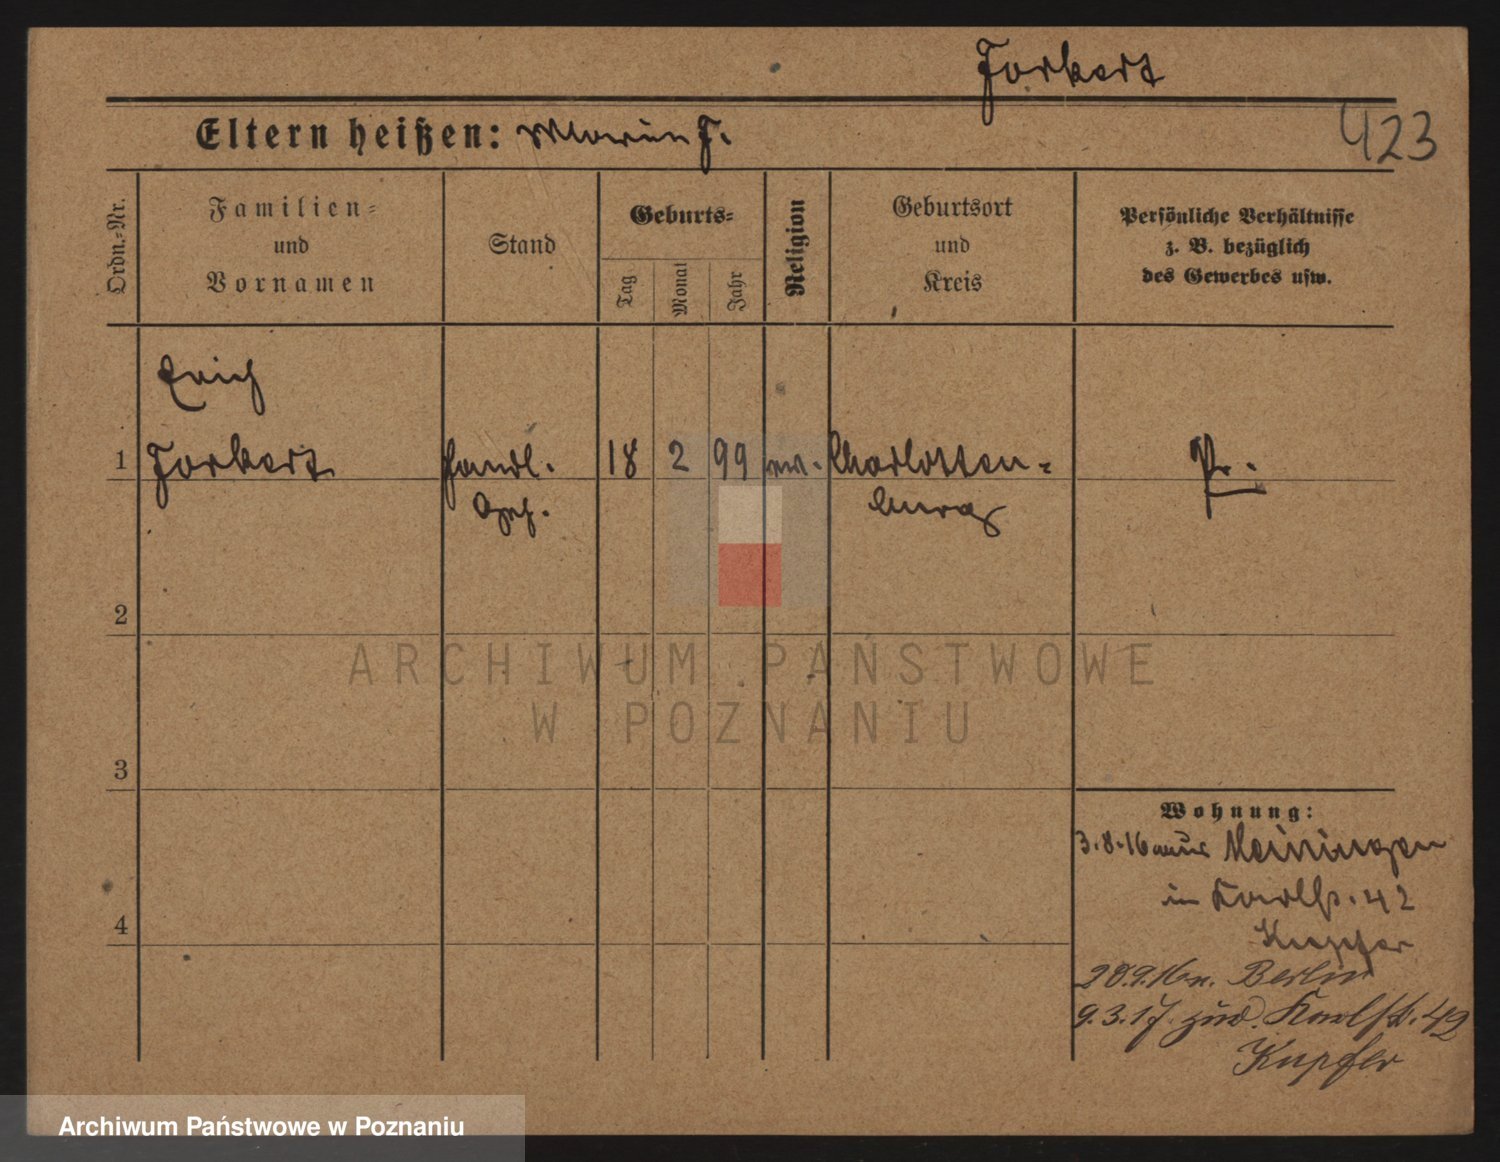 Jorbert
423
Eltern heißen: J.
Ordn.-Nr.
Familien-
und
Vornamen
Stand
Geburts-
Tag
Monat
Jahr
Religion
Geburtsort
und
Kreis
Persönliche Verhältnisse
z. B. bezüglich
des Gewerbes usw.
Erich
1 Jorbert Handl. 18 2 99 Charlotten- Pr.
burg
2
3
4
Wohnung:
3.8.16 aus Meiningen
in Karlstr. 42
Kupfer
20.9.16 n. Berlin
9.3.17 zur. Karlstr. 42
Kupfer
ARCHIWUM PAŃSTWOWE
W POZNANIU
Archiwum Państwowe w Poznaniu